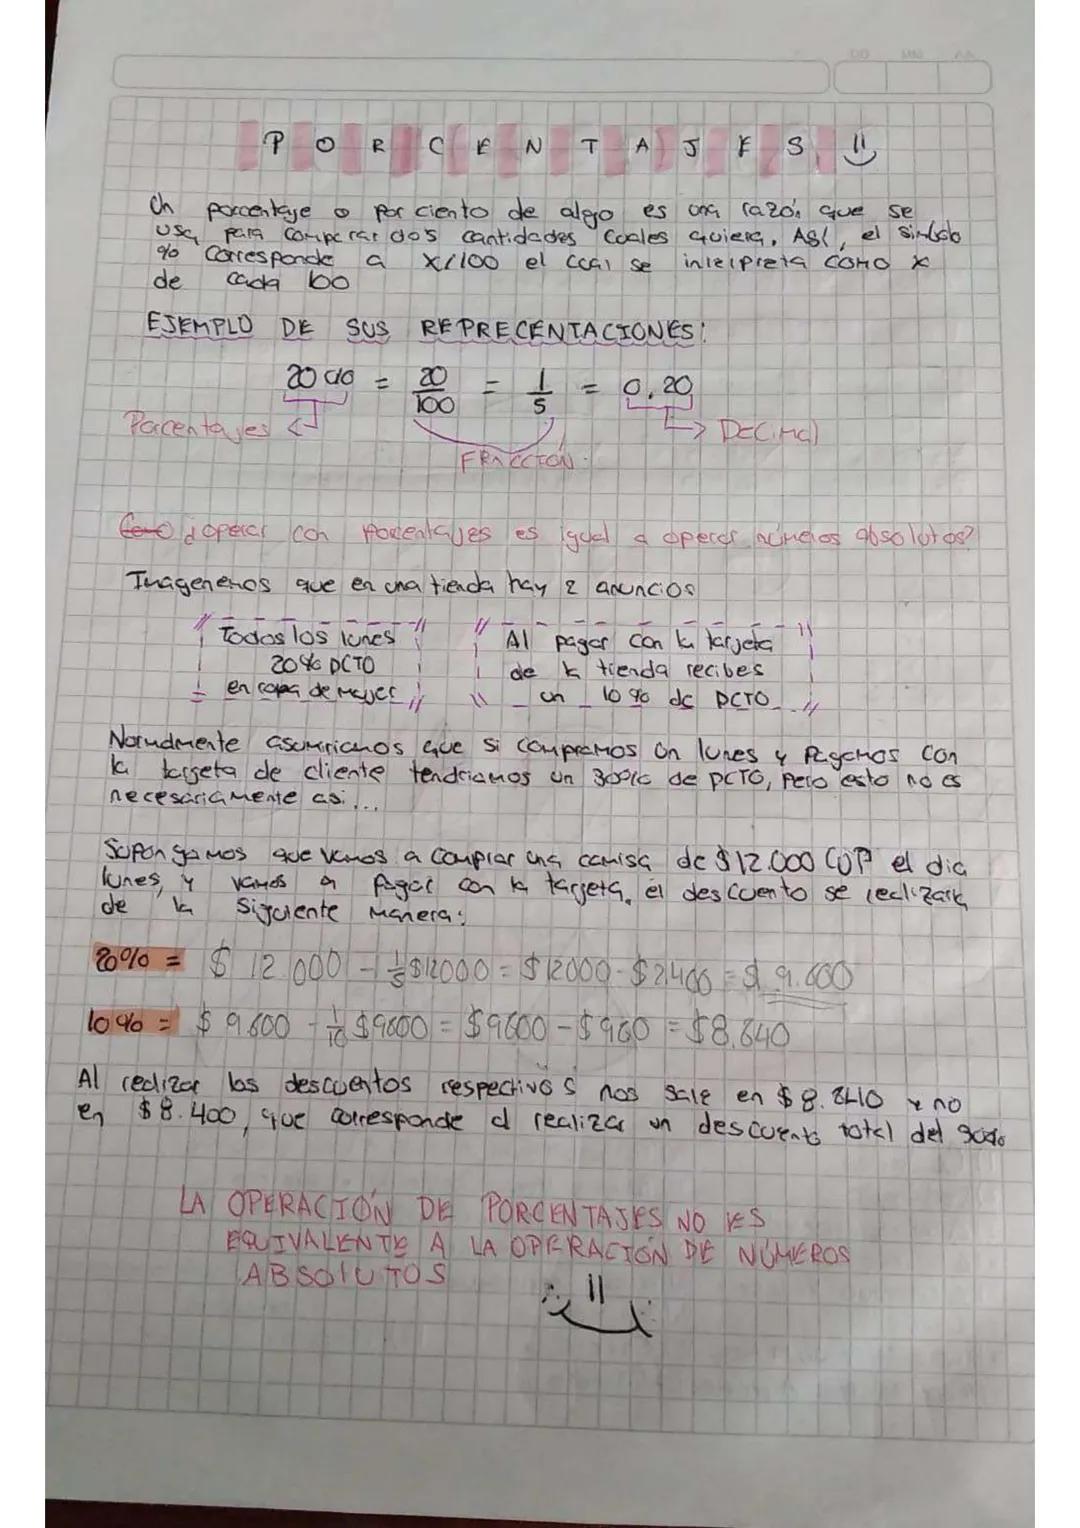 PORCENTAJES
Un porcentaje o por ciento de algo es una razón que se
usa para comparar dos cantidades cuales quiera. Así, el simbolo
% corresponde a x/100 el cual se interpreta como x
de cada 100
EJEMPLO DE SUS REPRECENTACIONES:
20% = 20/100 = 1/5 = 0,20
Porcentajes
DECIMAl
FRACCIÓN
¿operar con porcentajes es igual a operar números absolutos?
Imagenemos que en una tienda hay 2 anuncios
Todos los lunes
20% DCTO
en ropa de mujer
Al pagar con la tarjeta
de la tienda recibes
un 10% de DCTO
Normalmente asumiriamos que si compramos un lunes y pagamos con
la tarjeta de cliente tendriamos un 30% de DCTO, pero esto no es
necesariamente asi...
Supongamos que vamos a comprar una camisa de $12.000 COP el dia
lunes, y vamos a pagar con la tarjeta, el descuento se realizara
de la siguiente manera:
20% = $ 12.000 - 1/5 $12000 = $12000 - $2,400 = $ 9.600
10% = $ 9.600 - 1/10 $9600 = $9600 - $960 = $8.640
Al realizar los descuentos respectivos nos sale en $8.640 y no
en $8.400, que corresponde al realizar un descuento total del 30%
LA OPERACIÓN DE PORCENTAJES NO ES
EQUIVALENTE A LA OPERACIÓN DE NÚMEROS
ABSOlUTOS